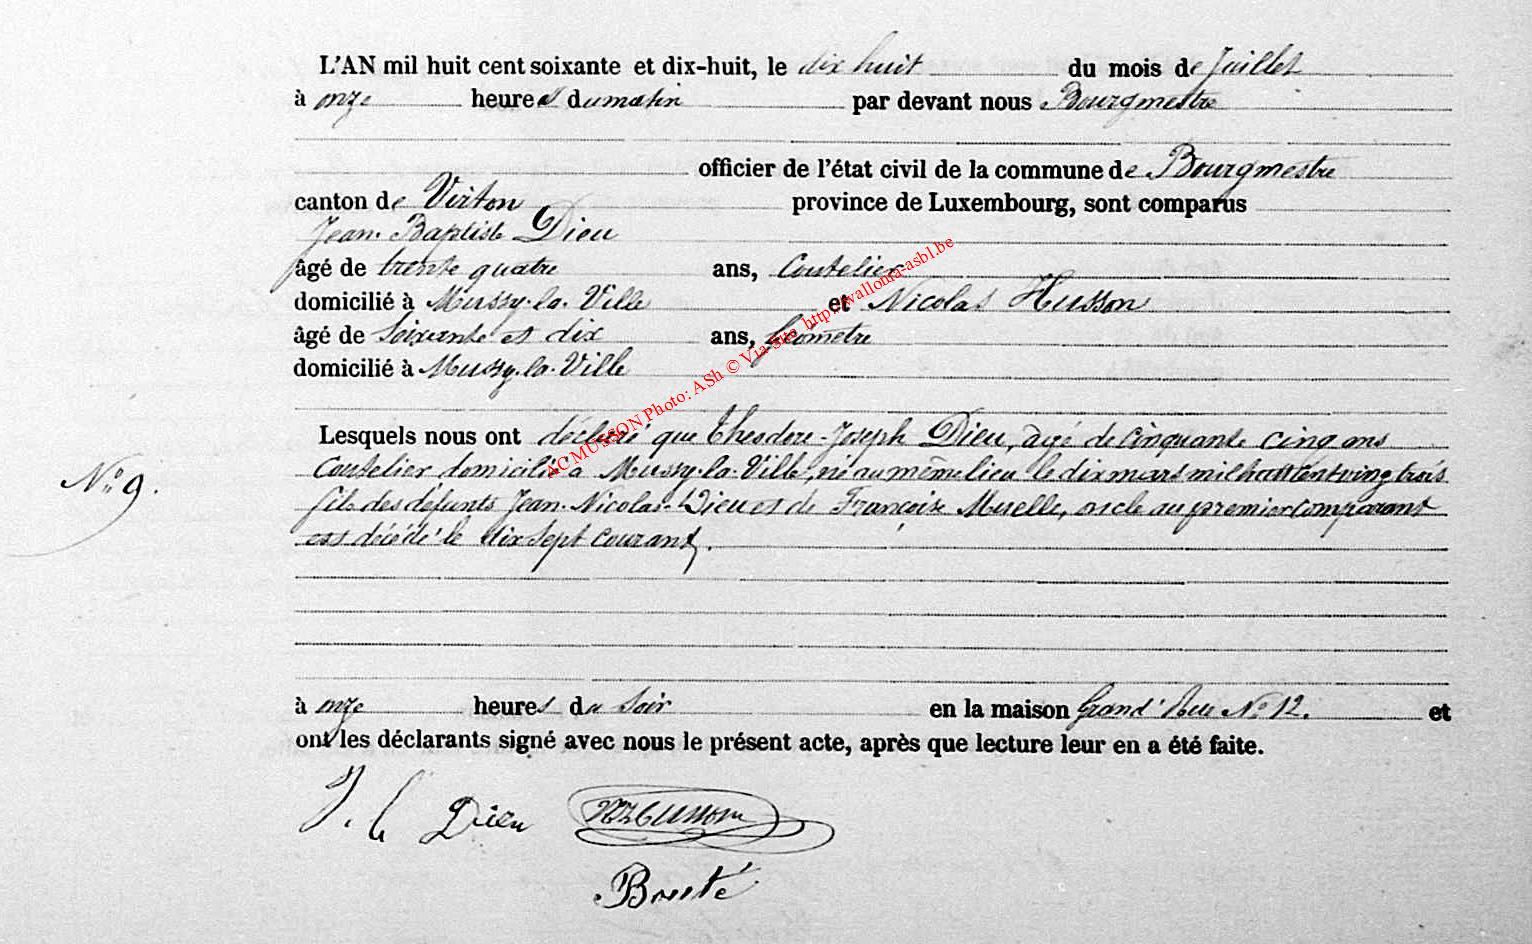 L'AN mil huit cent soixante et dix-huit, le dix huit du mois de Juillet
à onze heures du matin par devant nous Bourgmestre
officier de l'état civil de la commune de Bourgmestre
canton de Virton province de Luxembourg, sont comparus
Jean-Baptiste Dieu
âgé de trente quatre ans, Coutelier
domicilié à Mussy-la-Ville et Nicolas Husson
âgé de Soixante et dix ans, Géomètre
domicilié à Mussy-la-Ville
Lesquels nous ont déclaré que Théodore-Joseph Dieu, agé de Cinquante cinq ans
N° 9. Coutelier domicilié à Mussy-la-Ville, né au même lieu le dix mars mil huit cent vingt trois
fils des défunts Jean-Nicolas Dieu et de Françoise Muselle, oncle au premier comparant
est décédé le dix Sept Courant.
à onze heures du Soir en la maison Grand'Rue N° 12. et
ont les déclarants signé avec nous le présent acte, après que lecture leur en a été faite.
J. b Dieu Husson
Bouté
AC MUSSON Photo: ASh © Via Site http://wallonia-asbl.be